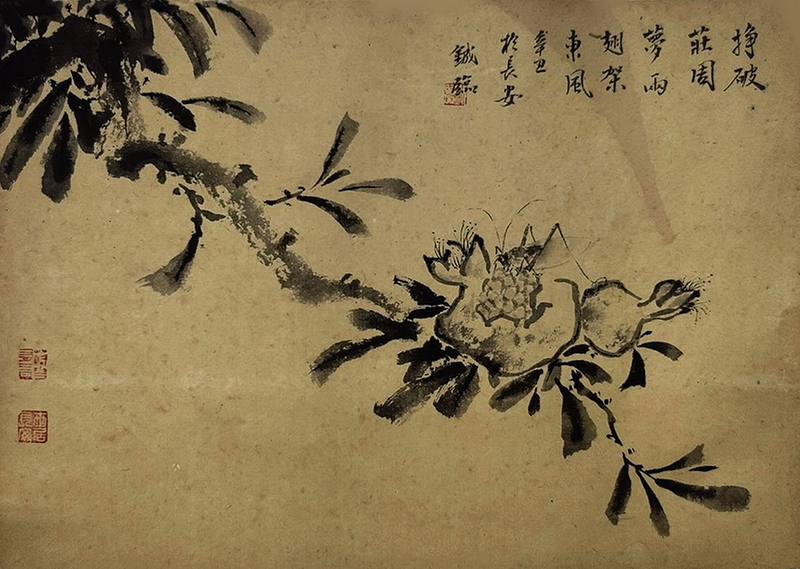 掙破
莊周
夢兩
翅架
東風
辛丑
於長安
鋮臨